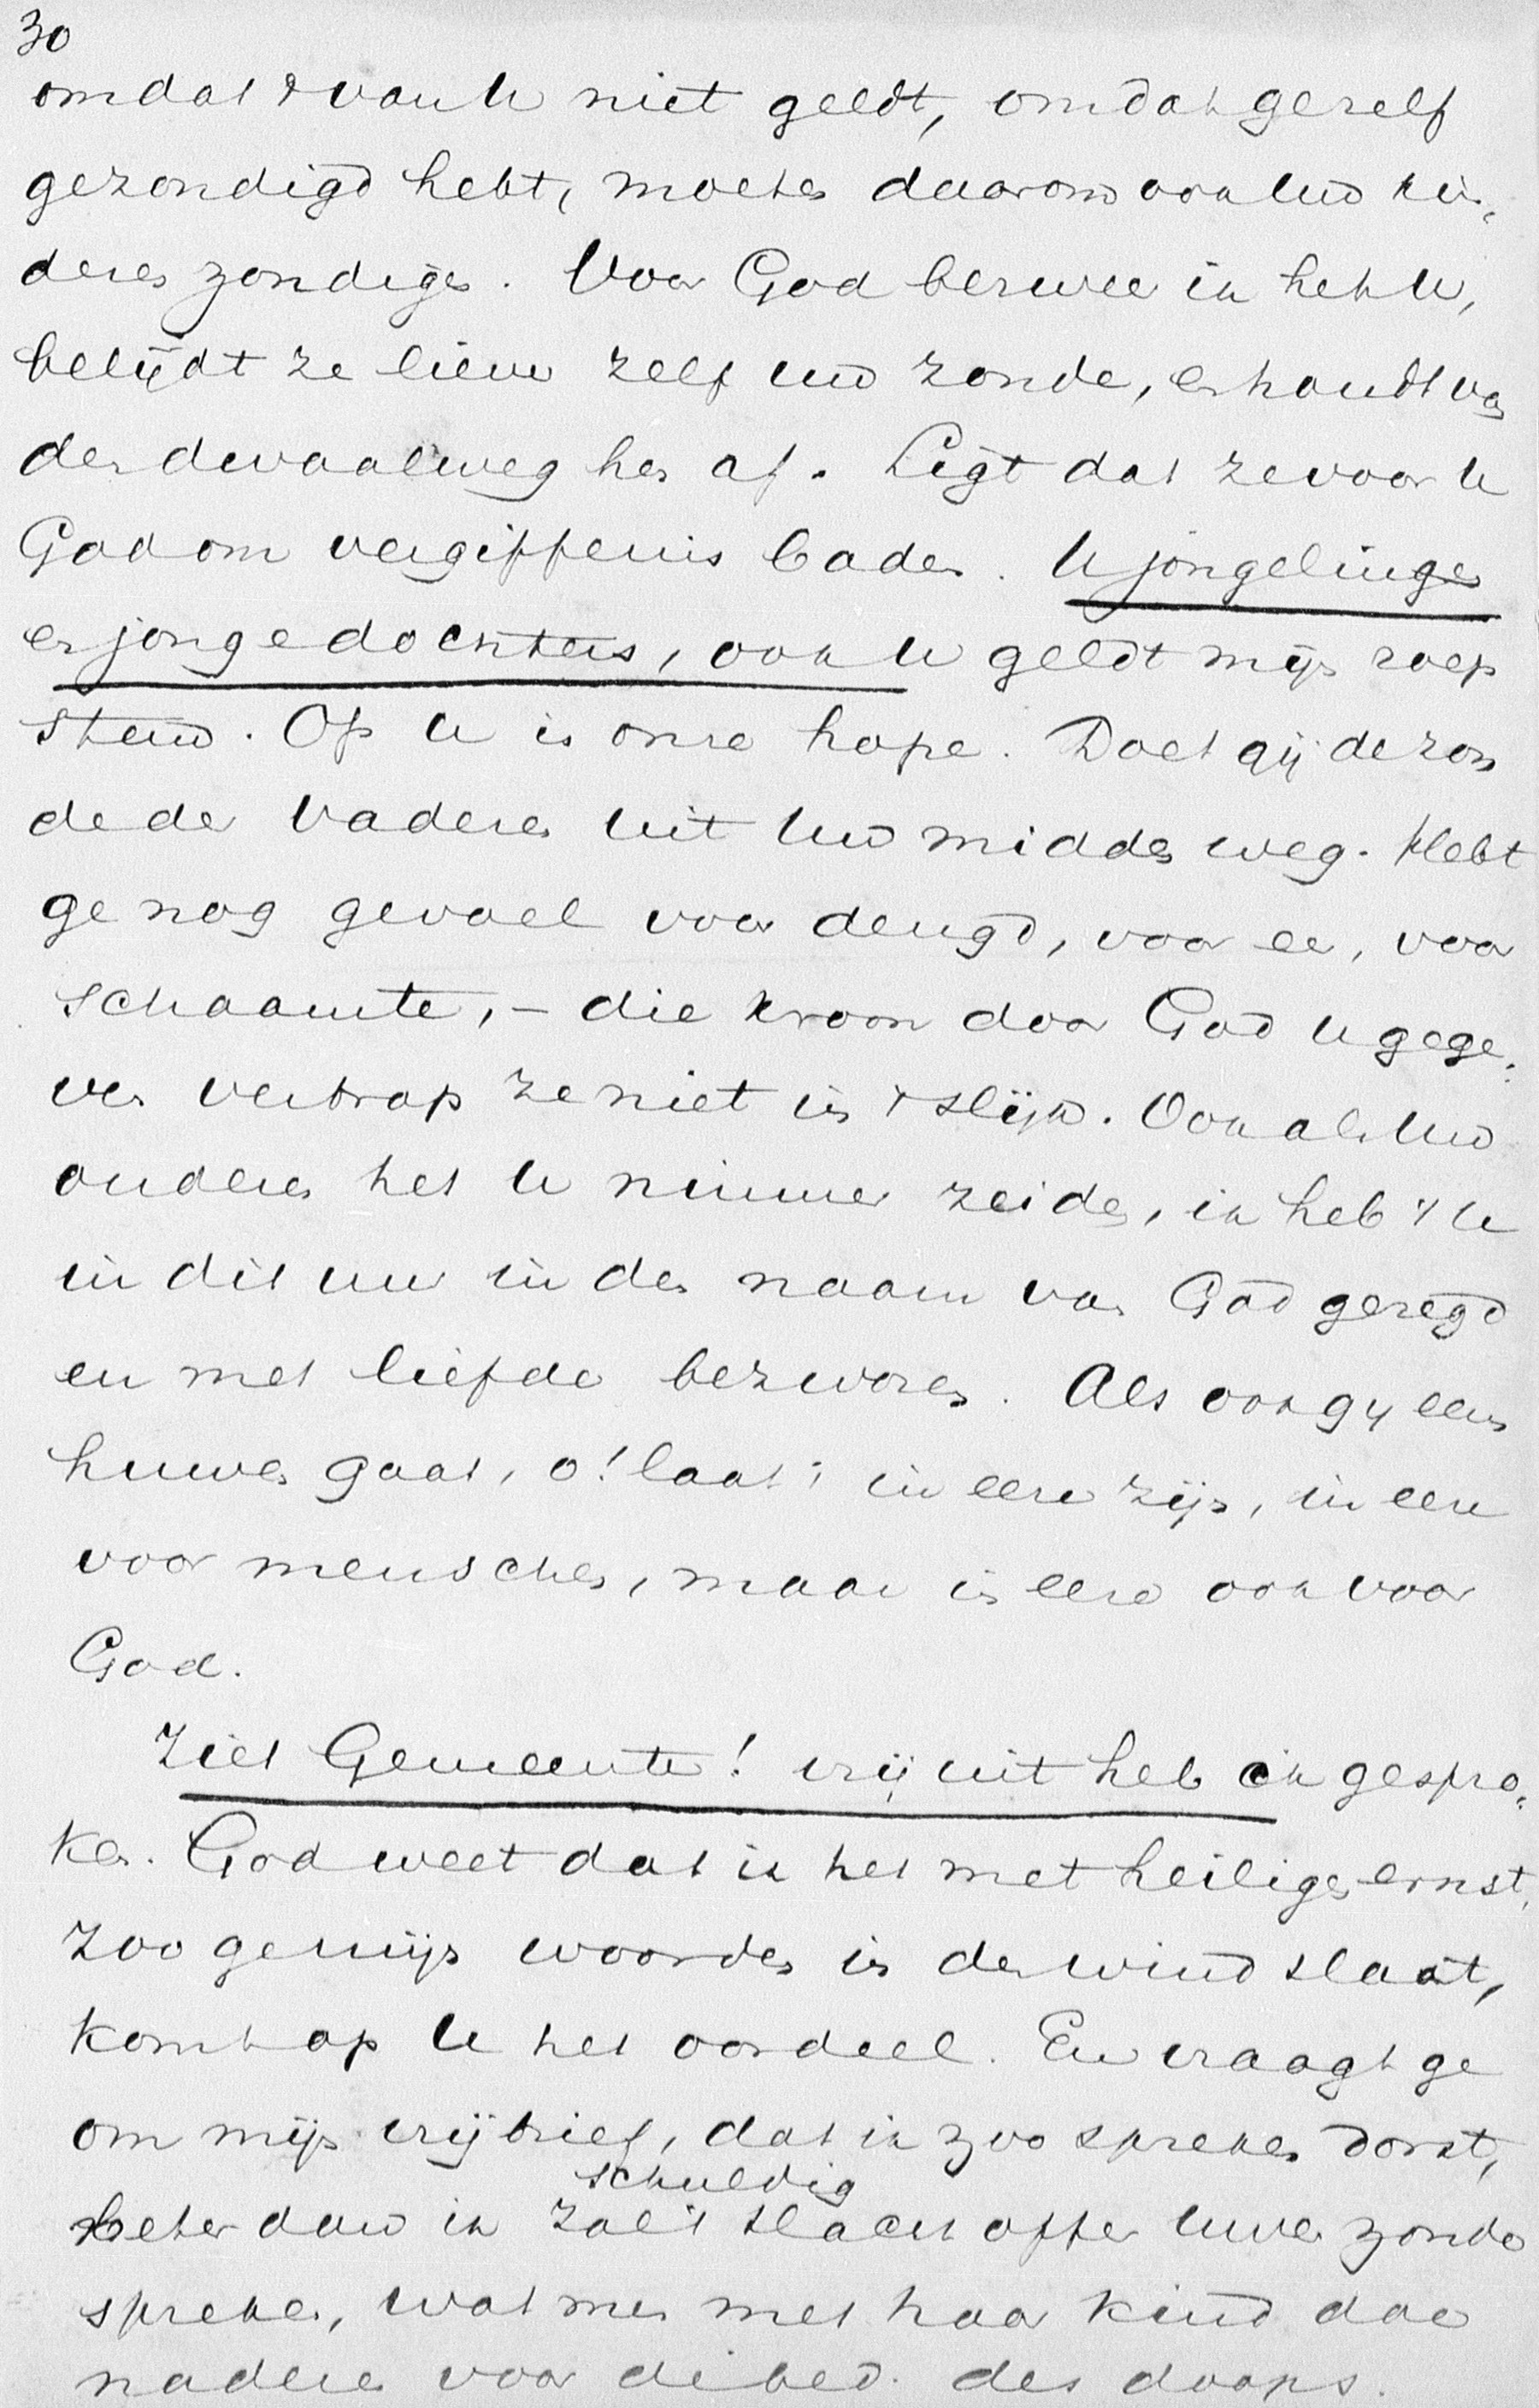 30
omdat 't van U niet geldt, omdat ge zelf
gezondigd hebt, moeten daarom ook Uw kin-
deren zondigen. Voor God bezweer ik het U,
belijdt ze liever zelf uw zonde, en houdt van
den dwaalweg hen af. Ligt dat ze voor U
God om vergiffenis baden. U jongelingen
en jongedochters, ook U geldt mijn roep
stem. Op U is onze hope. Doet gij de zon
de der Vaderen uit Uw midden weg. Hebt
ge nog gevoel voor deugd, voor eer, voor
schaamte, – die kroon door God U gege-
ven vertrap ze niet in 't slijk. Ook al Uw
ouderen het U nimmer zeiden, ik heb 't U
in dit uur in den naam van God gezegd
en met liefde bezworen. Als ook gij eens
huwen gaat, o! laat 't in eere zijn, in eere
voor menschen, maar in eere ook voor
God.
Ziet Gemeente! vrij uit heb ik gespro-
ken. God weet dat ik het met heiligen ernst,
Zoo ge mijn woorden in den wind slaat,
komt op U het oordeel. En vraagt ge
om mijn vrijbrief, dat ik zoo spreken dorst,
schuldig
beter dan ik zal 't slachtoffer Uwer zonde
spreken, wat men met haar kind doe
naderen voor de bed. des doops.